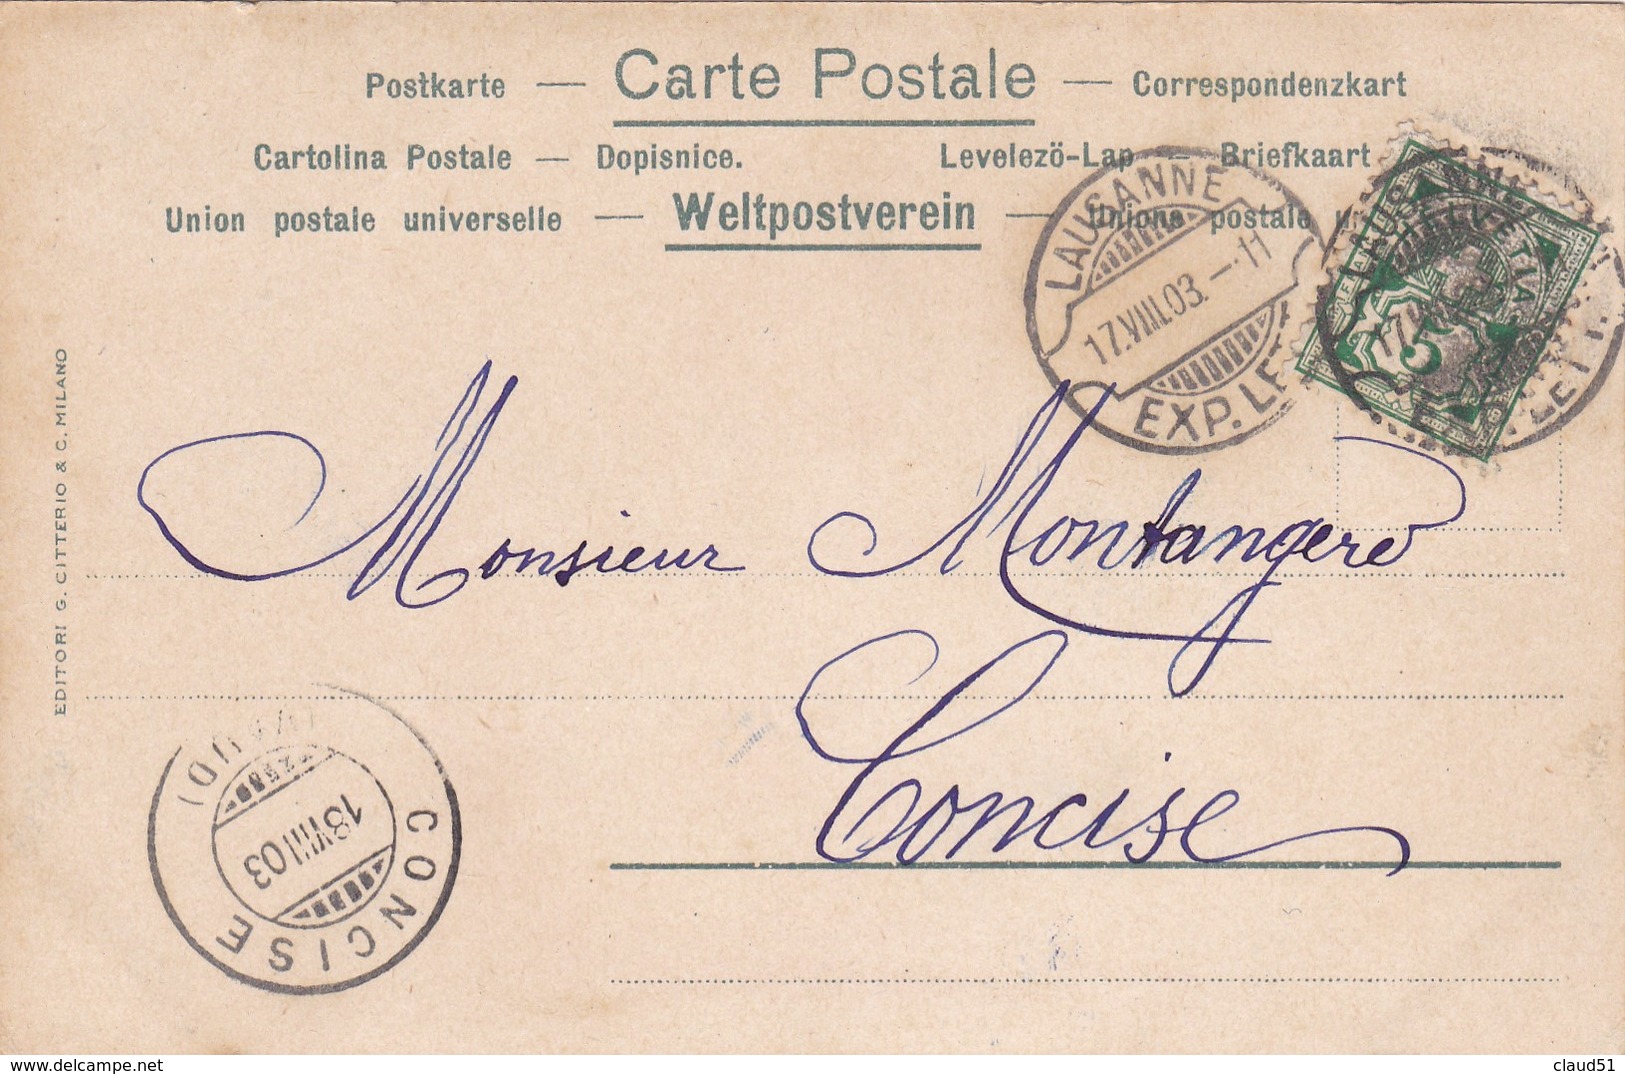 Postkarte — Carte Postale — Correspondenzkart
Cartolina Postale — Dopisnice. Levelezö-Lap — Briefkaart
Union postale universelle — Weltpostverein — Unione postale u
LAUSANNE
17.VIII.03.—11
EXP. LET
HELVETIA
5
EDITORI G. CITTERIO & C. MILANO
Monsieur Montangero
Concise
CONCISE (VAUD)
18 VIII 03
delcampe.net
claud51